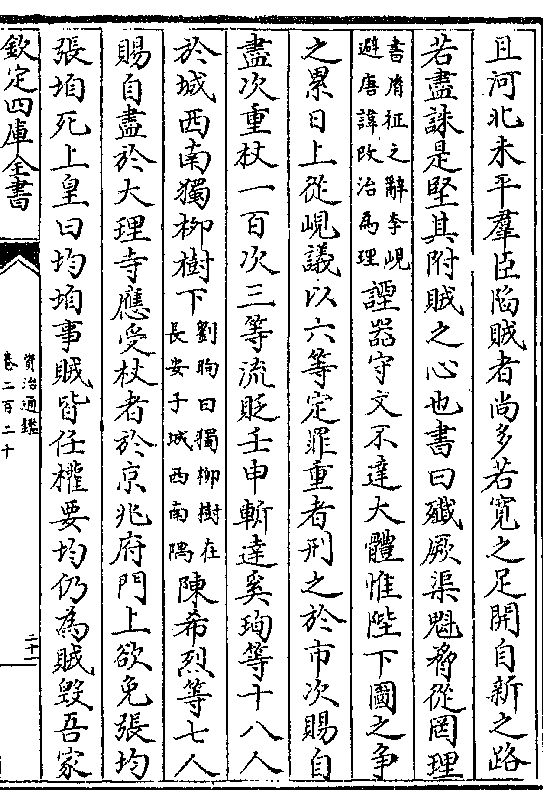 且河北未平羣臣陷賊者尚多若寛之足開自新之路
若盡誅是堅其附賊之心也書曰殲厥渠魁脅從罔理
書㣧征之辭李峴
避唐諱改治為理
諲器守文不達大體惟陛下圖之争
之累日上從峴議以六等定罪重者刑之於市次賜自
盡次重杖一百次三等流貶壬申斬達奚珣等十八人
於城西南獨柳樹下
劉昫曰獨柳樹在
長安子城西南隅
陳希烈等七人
賜自盡於大理寺應受杖者於京兆府門上欲免張均
張垍死上皇曰均垍事賊皆任權要均仍為賊毁吾家
欽定四庫全書
資治通鑑
卷二百二十
二十一